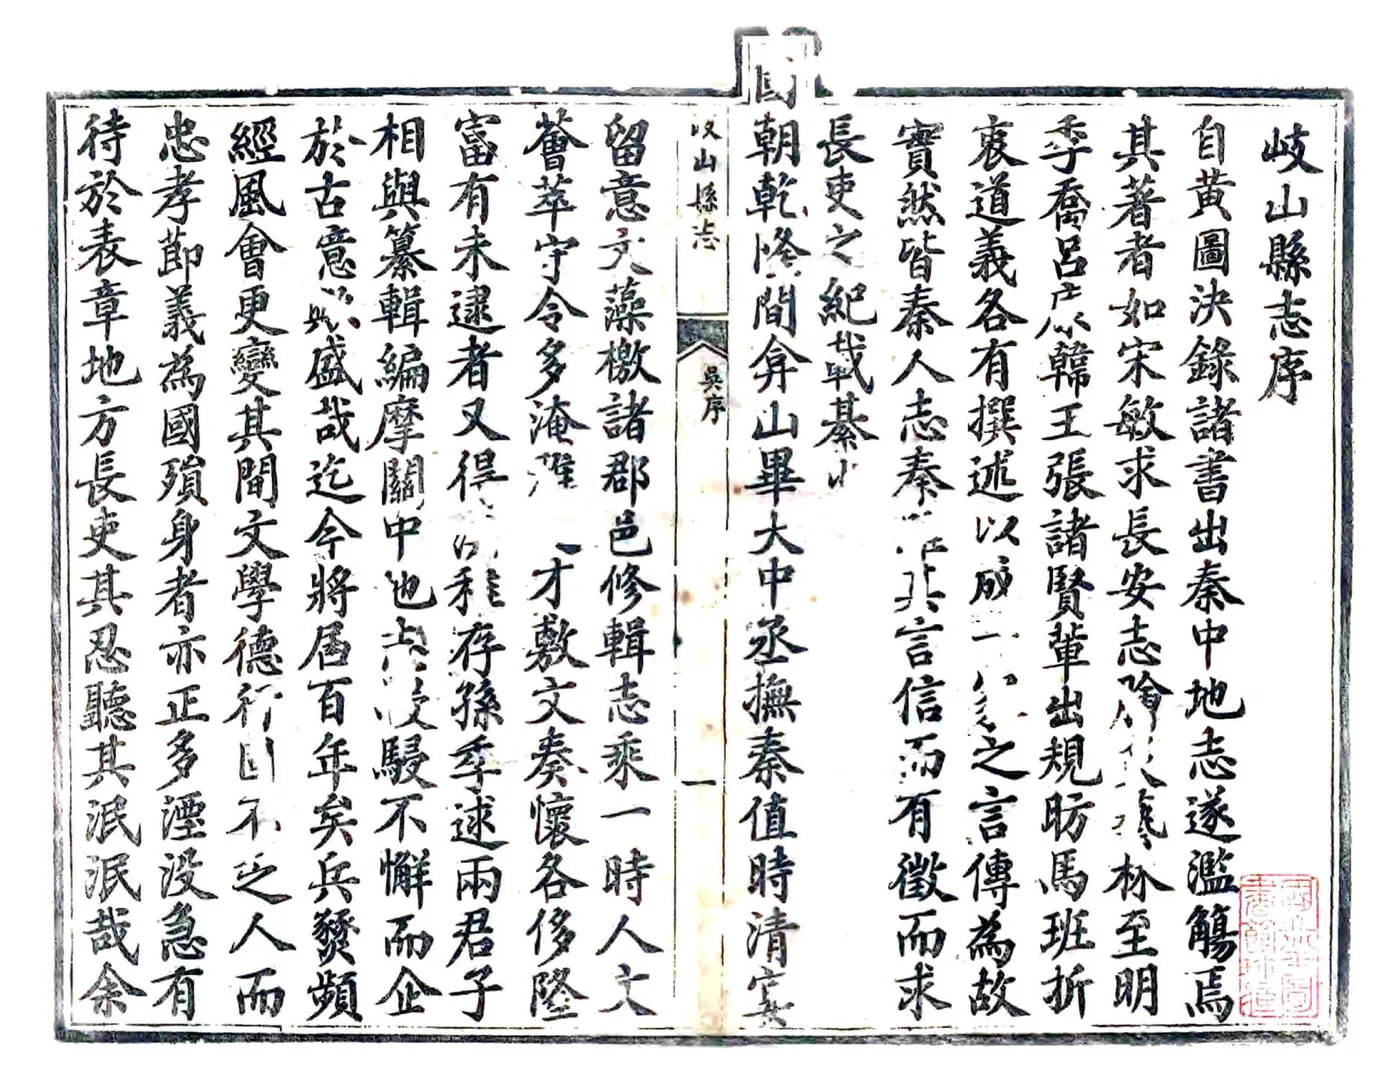 岐山縣志序
自黃圖決錄諸書出秦中地志遂濫觴焉
其著者如宋敏求長安志 林至明
季喬呂 韓王張諸賢輩出規昉馬班折
衷道義各有撰述以成一 之言傳為故
實然皆秦人志秦 其言信而有徵而求
長吏之紀載綦
國朝乾隆間弇山畢大中丞撫秦值時清宴
岐山縣志
吳序
一
留意文藻檄諸郡邑修輯志乘一時人文
薈萃守令多淹雅 才敷文奏懷各侈隆
富有未逮者又得 稚存孫季逑兩君子
相與纂輯編摩關中地志 駸不懈而企
於古意 盛哉迄今將屆百年矣兵燹頻
經風會更變其間文學德行固不乏人而
忠孝節義為國殞身者亦正多湮没急有
待於表章地方長吏其忍聽其泯泯哉余